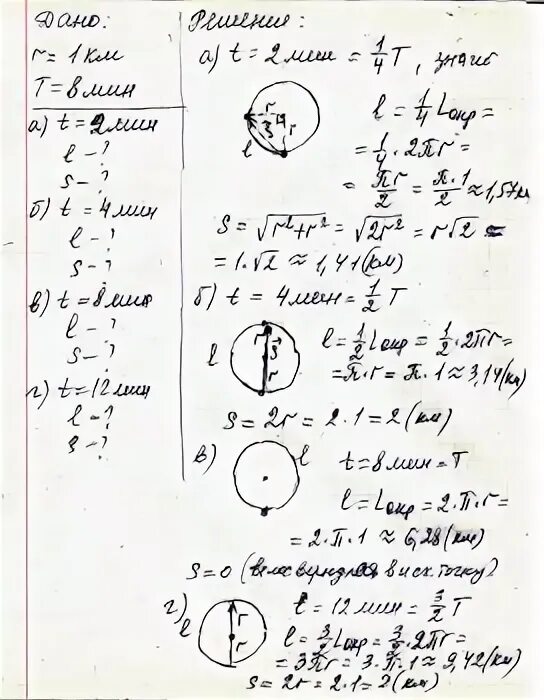 Дано:
r = 1 км
T = 8 мин
а) t = 2 мин
l - ?
s - ?
б) t = 4 мин
l - ?
s - ?
в) t = 8 мин
l - ?
s - ?
г) t = 12 мин
l - ?
s - ?
Решение:
а) t = 2 мин = 1/4 T, значит
r
r
l
l = 1/4 Lокр =
= 1/4 · 2πr =
= πr/2 = π·1/2 ≈ 1,57 км
S = √r²+r² = √2r² = r√2 =
= 1·√2 ≈ 1,41 (км)
б) t = 4 мин = 1/2 T
l
r
s
r
l = 1/2 Lокр = 1/2 · 2πr =
= π·r = π·1 ≈ 3,14 (км)
S = 2r = 2·1 = 2 (км)
в)
l
t = 8 мин = T
l = Lокр = 2·π·r =
= 2·π·1 ≈ 6,28 (км)
S = 0 (вернулся в исх. точку)
г)
l
r
r
t = 12 мин = 3/2 T
l = 3/2 Lокр = 3/2 · 2πr =
= 3πr = 3·π·1 ≈ 9,42 (км)
s = 2r = 2·1 = 2 (км)